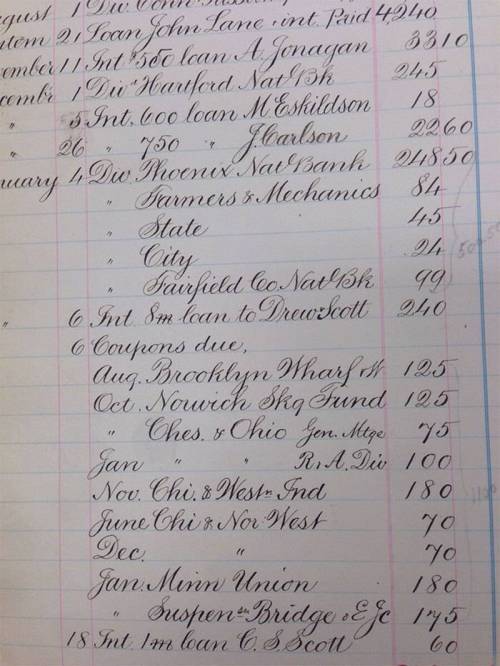 August 1 Div. Conn
21 Loan John Lane & int. Paid 4,240
11 Int $550 loan A. Jonagan 33 10
1 Div. Hartford Natl Bk 245
" 5 Int. 600 loan M Eskildson 18
" 26 " 750 " J. Carlson 22 60
January 4 Div. Phoenix Natl Bank 248 50
" Farmers & Mechanics 84
" State 45
" City 24
" Fairfield Co. Natl Bk 99
" 6 Int. 8m loan to Drew-Scott 240
6 Coupons due,
Aug. Brooklyn Wharf & W 125
Oct. Norwich Skg Fund 125
" Ches. & Ohio Gen. Mtge 75
Jan " " R. & A. Div 100
Nov. Chi. & Westn Ind 180
June Chi & Nor West 70
Dec. " 70
Jan. Minn Union 180
" Suspensn Bridge & E Jc 175
18 Int. 1m loan C. S. Scott 60